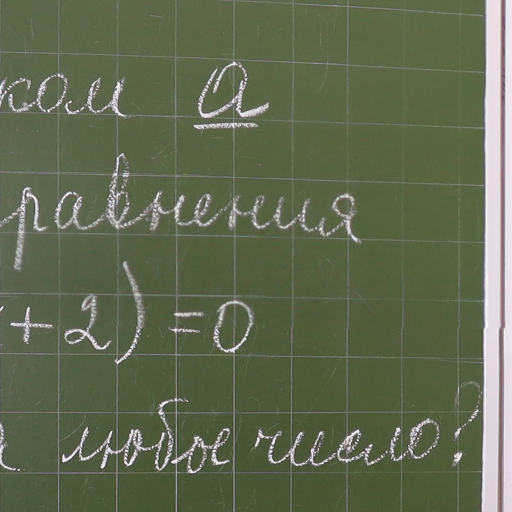 ком a
равнения
+2)=0
любое число?